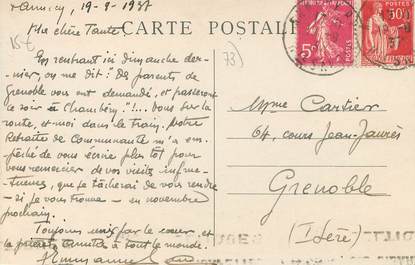 Annecy, 19-9-1937
CARTE POSTALE
Ma chère Tante
En rentrant ici dimanche der-
nier, on me dit : "Des parents de
Grenoble vous ont demandé, et passeront
le soir à Chambéry"!... Vous sur la
route, et moi dans le train. Notre
Retraite de Communauté m'a em-
pêché de vous écrire plus tôt pour
vous remercier de vos visites infruc-
tueuses, que je tâcherai de vous rendre
- si je vous trouve - en novembre
prochain.
Toujours unis par le cœur, et
la amitié à tout le monde.
15€
73)
5c
POSTES
50c
Mme Cartier
64, cours Jean-Jaurès
Grenoble
(Isère)